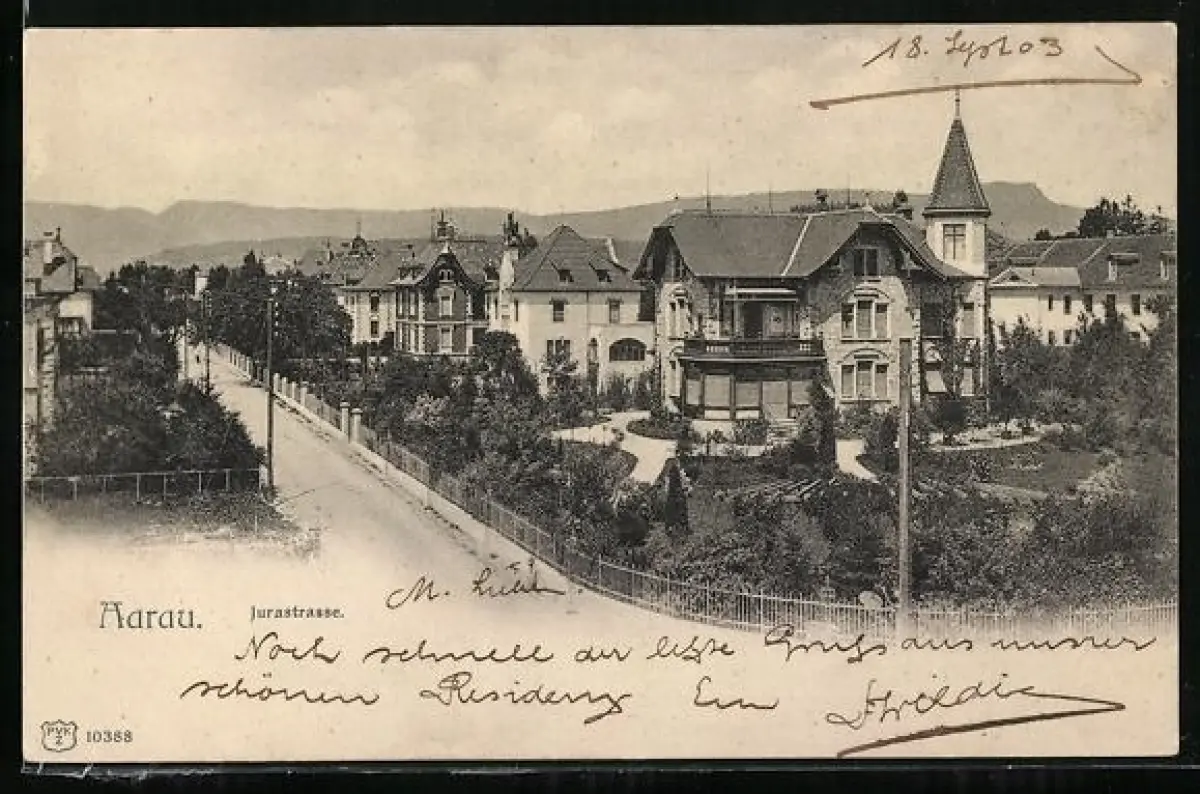 18. Sept 03
Aarau.
Jurastrasse.
M.
Noch schnell der letzte Gruss aus unserer
schönen Residenz
PVK
Z
10388